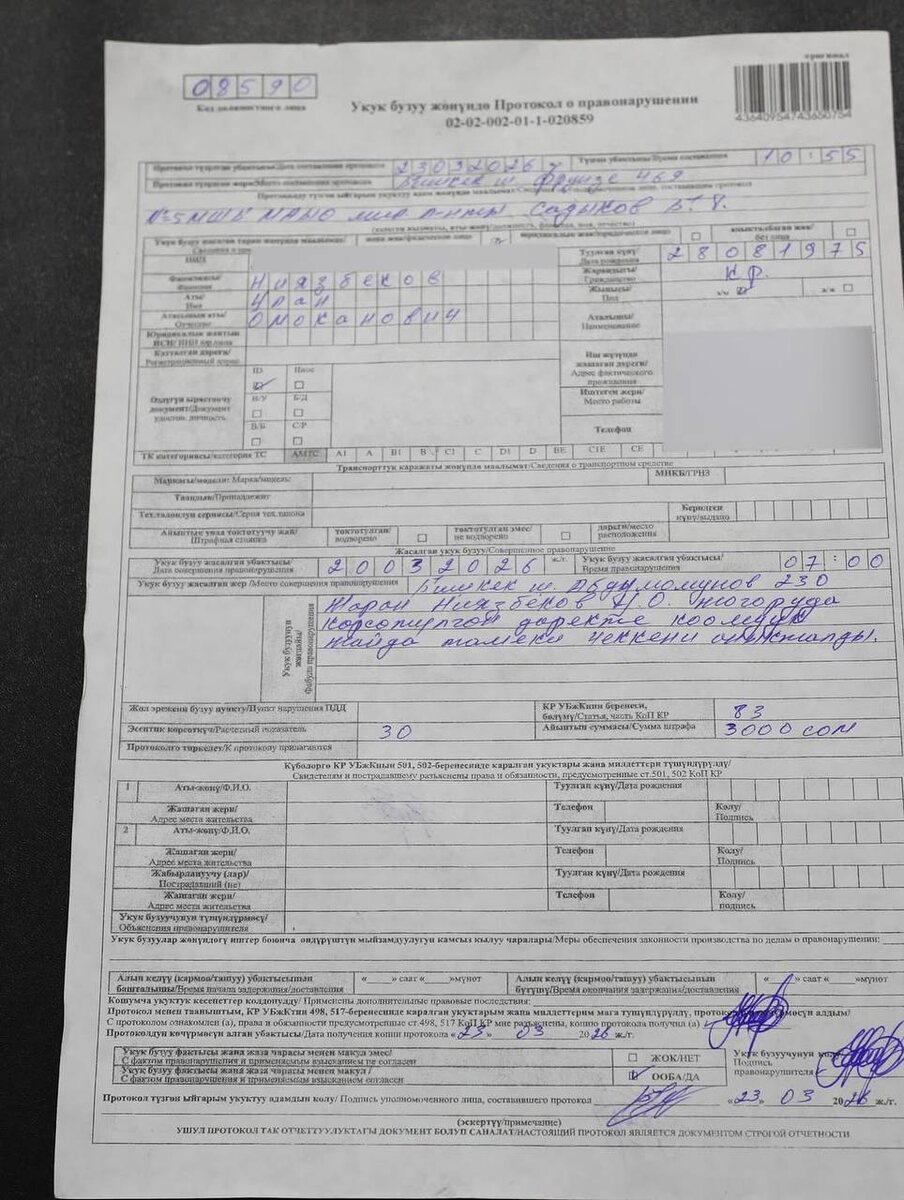 оригинал
08590
Код должностного лица
Укук бузуу жөнүндө Протокол о правонарушении
02-02-002-01-1-020859
43640954743650754
Протокол түзүлгөн убактысы/Дата составления протокола 23032026 Түзгөн убактысы/Время составления 10:55
Протокол түзүлгөн жери/Место составления протокола Бишкек ш Фрунзе 469
Садыков Б.
Туулган күнү/ Дата рождения 28081975
Фамилиясы/ Фамилия Ниязбеков
Жарандыгы/ Гражданство КР.
Аты/ Имя Уран
Жынысы/ Пол
Атасынын аты/ Отчество Омоканович
Аталышы/ Наименование
Юридикалык жактын ИСН/ИНН юр.лица
Катталган дареги/ Регистрационный адрес
Иш жүзүндө жашаган дареги/ Адрес фактического проживания
Өздүгүн ырастоочу документ/Документ удостов. личность
ID Иное
В/У Б/Д
В/Б С/Р
Иштеген жери/ Место работы
Телефон
ТК категориясы/категория ТС АМТС А1 А В1 В С1 С D1 D BE C1E CE
Транспорттук каражаты жөнүндө маалымат/Сведения о транспортном средстве
Маркасы/модели: Марка/модель: МНКБ/ГРНЗ
Таандык/Принадлежит
Тех.талон сериясы/Серия тех.талона Берилген күнү/выдано
Айыптык унаа токтотуучу жай/ Штрафная стоянка токтотулган/ водворено токтотулган эмес/ не водворено дареги/место расположения
Жасалган укук бузуу/Совершенное правонарушение
Укук бузуу жасалган убактысы/ Дата совершения правонарушения 20032026 ж./г. Укук бузуу жасалган убактысы/ Время правонарушения 07:00
Укук бузуу жасалган жер /Место совершения правонарушения Бишкек ш Абдымомунов 230
Укук бузуунун жагдайы/ Фабула правонарушения
Жаран Ниязбеков У.О. жогоруда
көрсөтүлгөн даректе коомдук
жайда тамеки чеккени аныкталды.
Жол эрежени бузуу пункту/Пункт нарушения ПДД КР УБжКнин беренеси, бөлүмү/Статья, часть КоП КР 83
Эсептик көрсөткүч/Расчетный показатель 30 Айыптын суммасы/Сумма штрафа 3000 сом
Протоколго тиркелет/К протоколу прилагаются
Күбөлөргө КР УБжКнын 501, 502-беренесинде каралган укуктары жана милдеттери түшүндүрүлдү/
Свидетелям и пострадавшему разъяснены права и обязанности, предусмотренные ст.501, 502 КоП КР
1 Аты-жөнү/Ф.И.О. Туулган күнү/Дата рождения
Жашаган жери/ Адрес места жительства Телефон Колу/ Подпись
2 Аты-жөнү/Ф.И.О. Туулган күнү/Дата рождения
Жашаган жери/ Адрес места жительства Телефон Колу/ Подпись
Жабырлануучу (лар)/ Пострадавший (не) Туулган күнү/Дата рождения
Жашаган жери/ Адрес места жительства Телефон Колу/ подпись
Укук бузуучунун түшүндүрмөсү/ Объяснения правонарушителя
Укук бузуулар жөнүндөгү иштер боюнча өндүрүштүн мыйзамдуулугун камсыз кылуу чаралары/Меры обеспечения законности производства по делам о правонарушении:
Алып келүү (кармоо/ташуу) убактысынын башталышы/Время начала задержания/доставления « » саат « »мүнөт Алып келүү (кармоо/ташуу) убактысынын бүтүшү/Время окончания задержания/доставления « » саат « »мүнөт
Кошумча укуктук кесепеттер колдонулду/ Применены дополнительные правовые последствия:
Протокол менен тааныштым, КР УБжКтин 498, 517-беренесинде каралган укуктарым жана милдеттерим мага түшүндүрүлдү, протоколдун көчүрмөсүн алдым/
С протоколом ознакомлен (а), права и обязанности предусмотренные ст.498, 517 КоП КР мне разъяснены, копию протокола получил (а)
Протоколдун көчүрмөсүн алган убактысы/Дата получения копии протокола «23» 03 2026 ж./г.
Укук бузуу фактысы жана жаза чарасы менен макул эмес/ С фактом правонарушения и применяемым взысканием не согласен ЖОК/НЕТ
Укук бузуу фактысы жана жаза чарасы менен макул / С фактом правонарушения и применяемым взысканием согласен ООБА/ДА
Укук бузуучунун колу/ Подпись правонарушителя
Протокол түзгөн ыйгарым укуктуу адамдын колу/ Подпись уполномоченного лица, составившего протокол «23» 03 2026 ж./г.
(эскертүү/примечание)
УШУЛ ПРОТОКОЛ ТАК ОТЧЕТТУУЛУКТАГЫ ДОКУМЕНТ БОЛУП САНАЛАТ/НАСТОЯЩИЙ ПРОТОКОЛ ЯВЛЯЕТСЯ ДОКУМЕНТОМ СТРОГОЙ ОТЧЕТНОСТИ